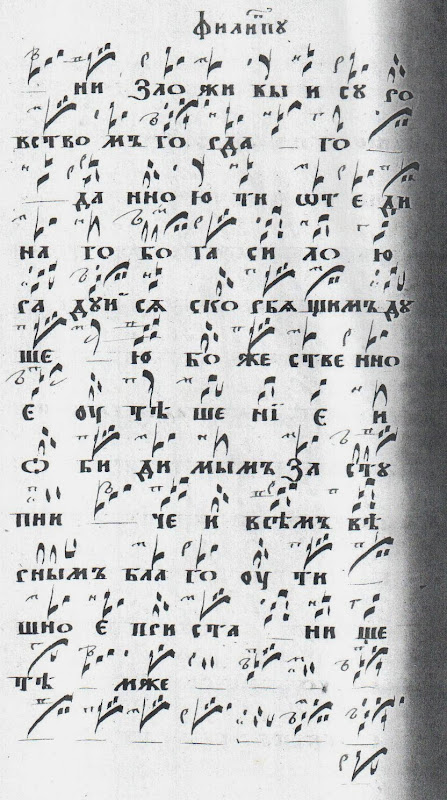 филипу
ни зло жи вы и су ро
вство мъ го рда го
да нною ти ѿт е ди
на го бо га си ло ю
ра дуи ся ско рбящимъ ду
ше ю бо же стве нно
е оу тѣ ше нїе и
ѡ би ди мымъ за сту
пни че и всѣмъ вѣ
рнымъ благо оу ти
шно е при ста ни ще
тѣ мже